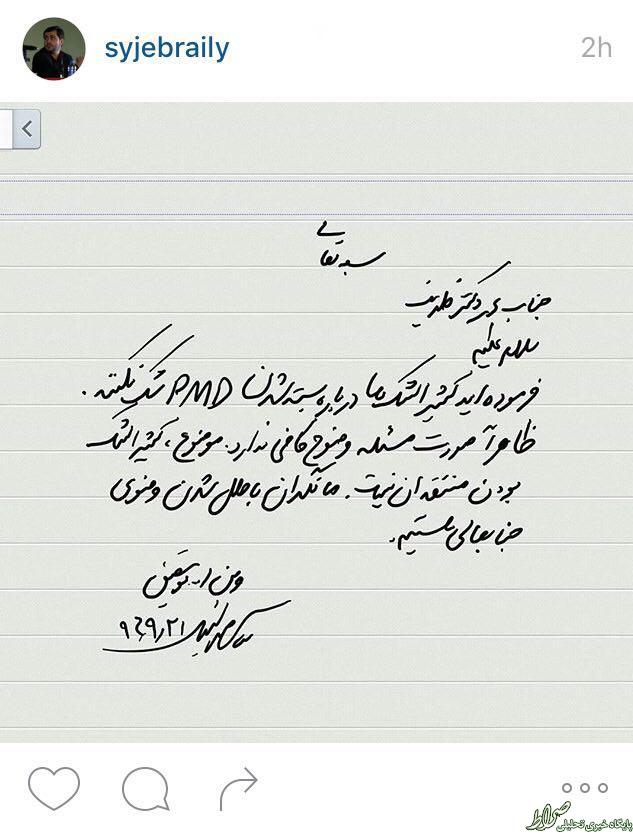 syjebraily
2h
بسمه تعالی
جناب دکتر ظریف
سلام علیکم
فرموده اید کثیر الشک ها درباره بسته شدن PMD شک نکنند.
ظاهراً صورت مسئله وضوح کافی ندارد. موضوع، کثیر الشک
بودن منتقدان نیست. ما نگران باطل شدن وضوی
جنابعالی هستیم.
و من ا... توفیق
۹۴,۹,۲۱
صراط
پایگاه خبری تحلیلی